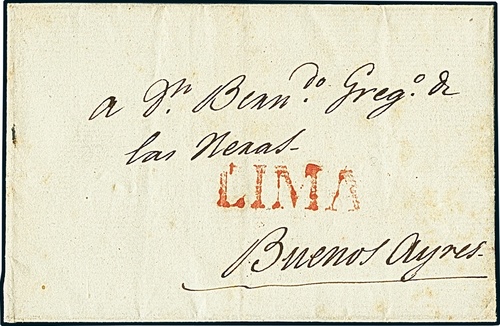 A Dn. Berndo. Grego. de
las Heras
LIMA
Buenos Ayres.